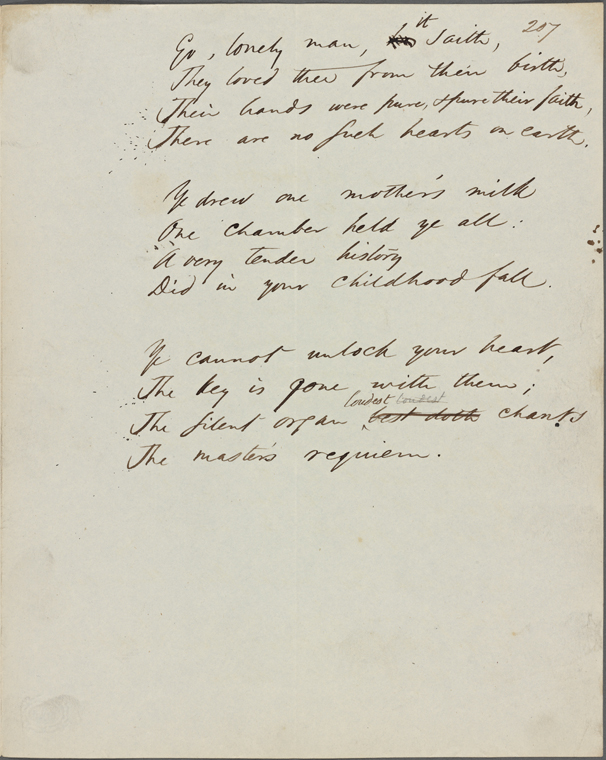 207
Go, lonely man, it saith,
They loved thee from their birth,
Their hands were pure, & pure their faith,
There are no such hearts on earth.
Ye drew one mother's milk
One chamber held ye all:
A very tender history
Did in your childhood fall.
Ye cannot unlock your heart,
The key is gone with them;
loudest loudest
The silent organ best doth chants
The master's requiem.